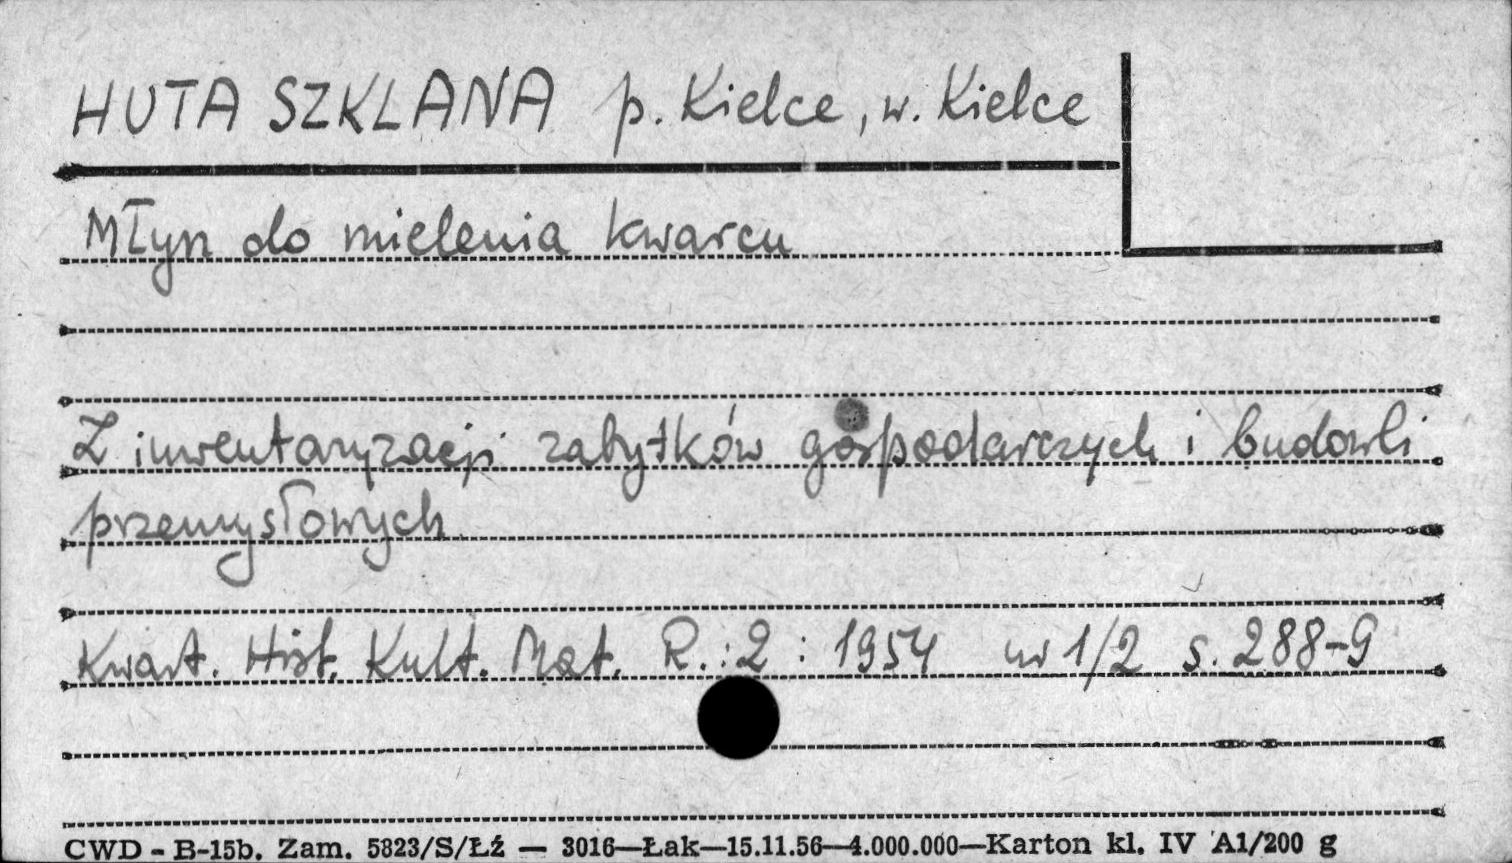 HUTA SZKLANA p. Kielce, w. Kielce
Młyn do mielenia kwarcu
Z inwentaryzacji zabytków gospodarczych i budowli
przemysłowych.
Kwart. Hist. Kult. Mat. R.: 2 : 1954 nr 1/2 s. 288-9
CWD - B-15b. Zam. 5823/S/Łź — 3016—Łak—15.11.56—4.000.000—Karton kl. IV A1/200 g